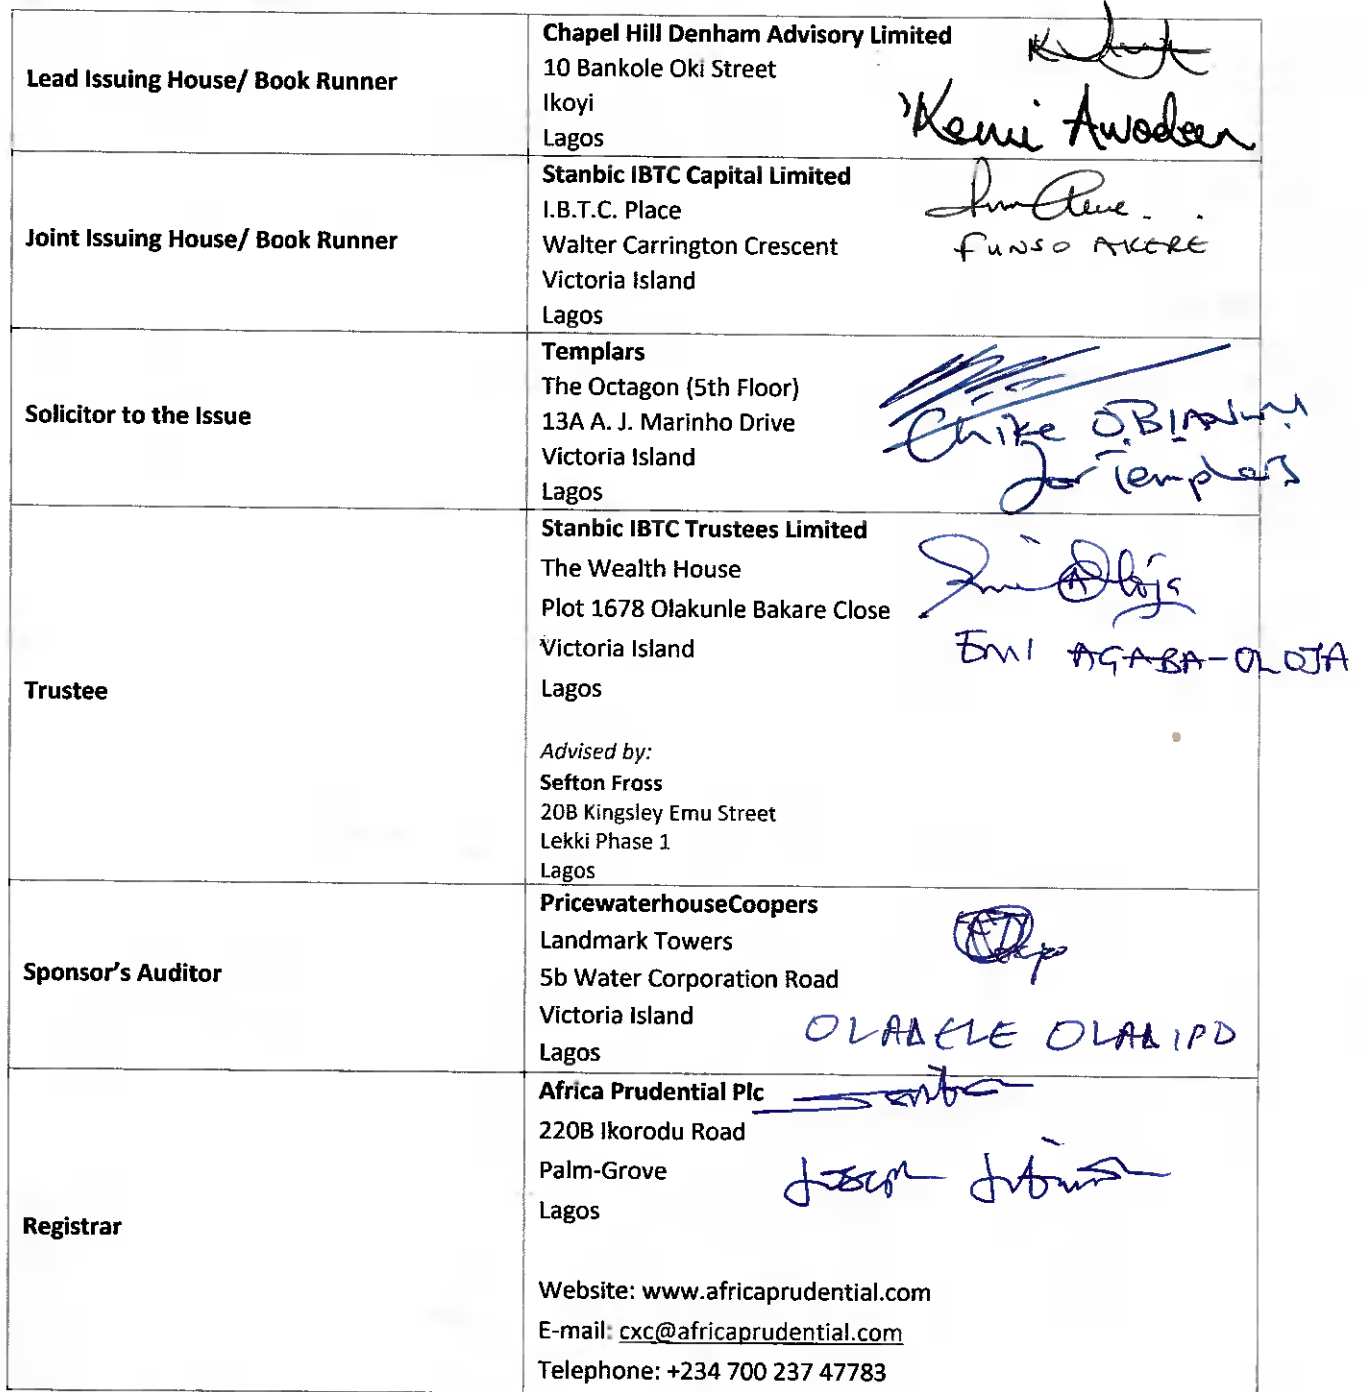 Lead Issuing House/ Book Runner
Chapel Hill Denham Advisory Limited
10 Bankole Oki Street
Ikoyi
Lagos
'Kemi Awodein
Joint Issuing House/ Book Runner
Stanbic IBTC Capital Limited
I.B.T.C. Place
Walter Carrington Crescent
Victoria Island
Lagos
FUNSO AKERE
Solicitor to the Issue
Templars
The Octagon (5th Floor)
13A A. J. Marinho Drive
Victoria Island
Lagos
Chike OBIANWU
for Templars
Trustee
Stanbic IBTC Trustees Limited
The Wealth House
Plot 1678 Olakunle Bakare Close
Victoria Island
Lagos
EMI AGABA-OLOJA
Advised by:
Sefton Fross
20B Kingsley Emu Street
Lekki Phase 1
Lagos
Sponsor's Auditor
PricewaterhouseCoopers
Landmark Towers
5b Water Corporation Road
Victoria Island
Lagos
OLADELE OLADIPO
Registrar
Africa Prudential Plc
220B Ikorodu Road
Palm-Grove
Lagos
Joseph
Website: www.africaprudential.com
E-mail: cxc@africaprudential.com
Telephone: +234 700 237 47783